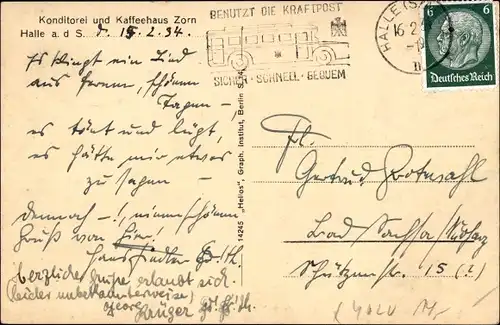 Konditorei und Kaffeehaus Zorn
Halle a. d S. d. 15.2.34.
Es klingt ein Lied
aus fernen, schönen
Tagen –
es tönt und lügt,
es hätte mir etwas
zu sagen –
dennoch –! einen schönen
Gruß von hier,
Hans Fiedler
herzliche Grüße erlaubt sich
(leider unbekannterweise)
Georg Krüger
BENUTZT DIE KRAFTPOST
SICHER · SCHNELL · BEQUEM
HALLE (S
16.2.
6 6
Deutsches Reich
14245 „Helios“, Graph. Institut, Berlin S 14
Frl.
Gertrud Rotmahl
Bad Sachsa/Südharz
Schützenstr. 15 (I)